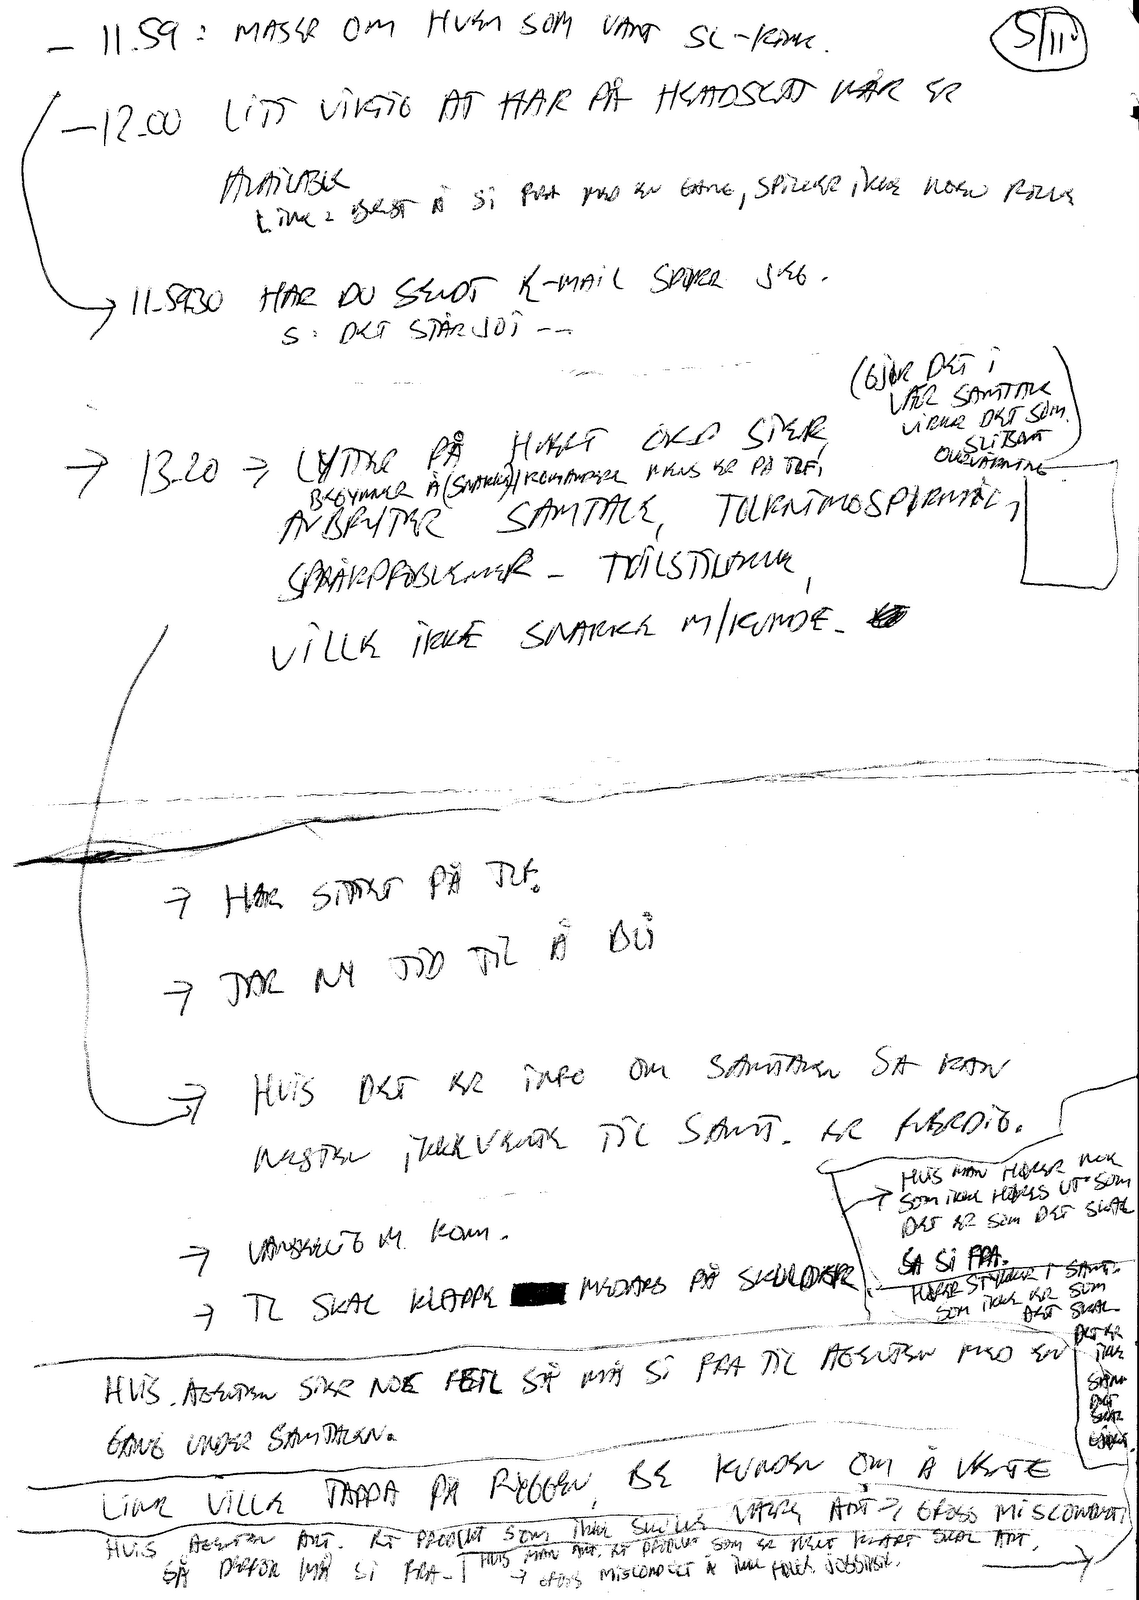 5/11
– 11.59 : MASER OM HVEM SOM VANT SL-
– 12.00 LITT VIKTIG AT HAR PÅ HEADSETT NÅR ER
AVAILABLE
LINE : BEST Å SI FRA MED EN GANG, SPILLER IKKE NOEN ROLLE
→ 11.5930 HAR DU SENDT E-MAIL SPØR JEG.
S: DET STÅR JO I ---
(GJØR DET I
VÅR SAMTALE
VIRKER DET SOM.
SLITSOM
OVERVÅKNING)
→ 13.20 → LYTTER PÅ HVERT ORD SIER,
BEGYNNER Å (SNAKKE)/KOMMANDERE MENS ER PÅ TLF,
AVBRYTER SAMTALE,
SPRÅKPROBLEMER –
VILLE IKKE SNAKKE M/KUNDE.
→ HAR SITTET PÅ TLF.
→ TAR NY TID TIL Å BLI
→ HVIS DET ER INFO OM SAMTALEN SA KAN
NESTEN IKKE VENTE TIL SAMT. ER FERDIG.
→ HVIS MAN HØRER NOE
SOM IKKE HØRES UT SOM
DET ER SOM DET SKAL
SA SI FRA.
→ VANSKELIG M. KOM.
→ TL SKAL KLAPPE MEDARB PÅ SKULDER
HØRER STYKKER I SAMT.
SOM IKKE ER SOM
DET SKAL
DET ER
IKKE
SÅNN
DET
SKAL
GJØRE
HVIS AGENTEN SIER NOE FEIL SÅ MÅ SI FRA TIL AGENTEN MED EN
GANG UNDER SAMTALEN.
LINE VILLE TAPPA PÅ RYGGEN, BE KUNDEN OM Å VENTE
HVIS AGENTEN ANT. ET PRODUKT SOM IKKE SKULLE VÆRE ANT → GROSS MISCONDUCT
SÅ DERFOR MÅ SI FRA – HVIS MAN ANT. ET PRODUKT SOM ER HELT KLART SKAL ANT.
→ GROSS MISCONDUCT Å IKKE FØLGE